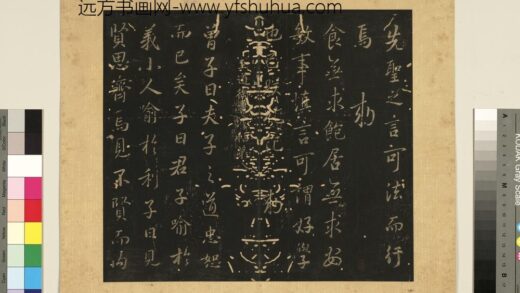 远方书画网-www.yfshuhua.com
先聖之言可法而行
焉
食無求飽居無求安
敏事慎言可謂好學
曾子曰夫子之道忠恕
而已矣子曰君子喻於
義小人喻於利子曰見
賢思齊焉見不賢而内